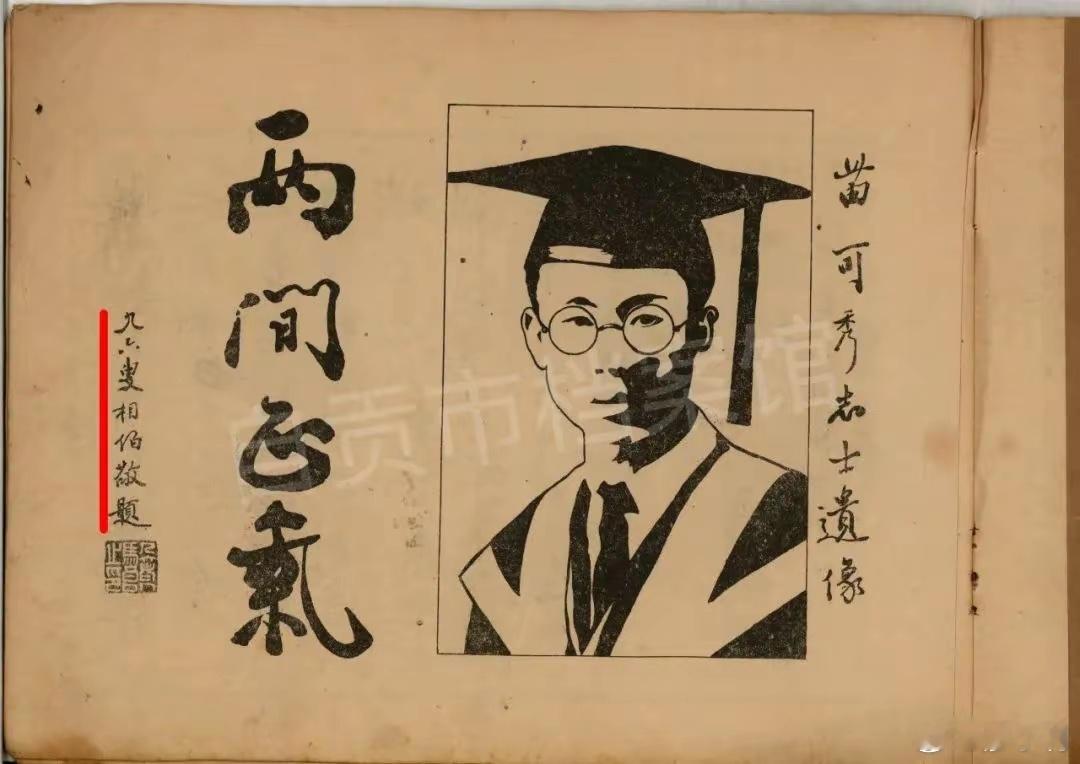 苗可秀志士遺像
兩間正氣
九六叟相伯敬題
自贡市档案馆